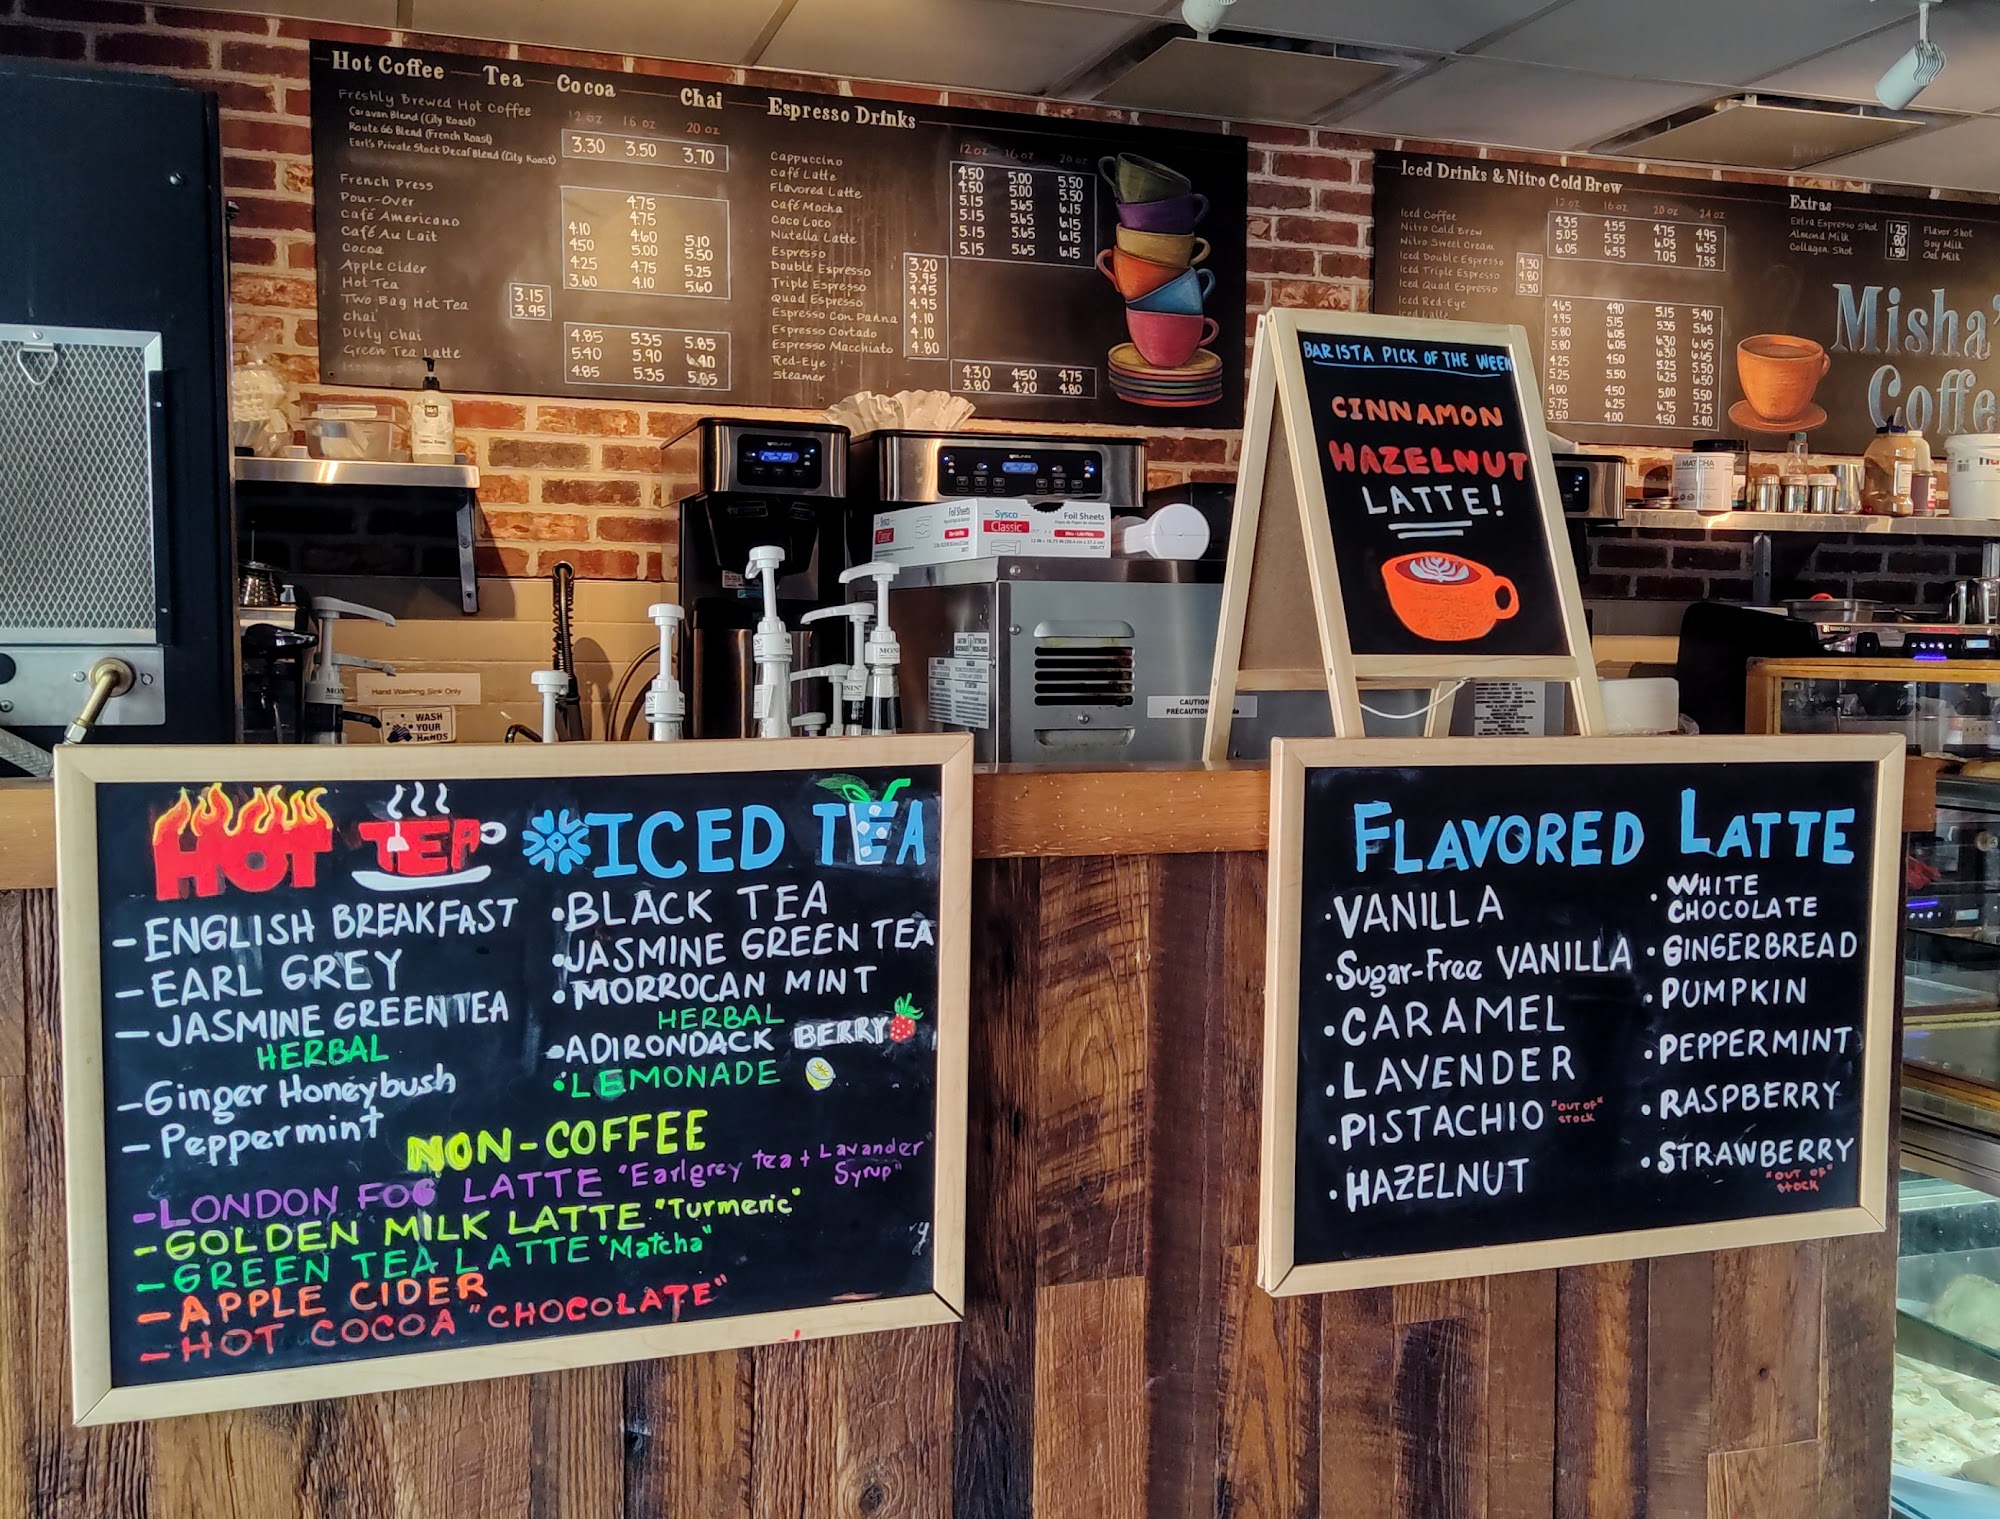 Hot Coffee Tea Cocoa Chai
Freshly Brewed Hot Coffee 12 oz 16 oz 20 oz
Caravan Blend (City Roast)
Route 66 Blend (French Roast)
Earl's Private Stock Decaf Blend (City Roast)
3.30 3.50 3.70
French Press 4.75
Pour-Over 4.75
Café Americano 4.10 4.60 5.10
Café Au Lait 4.50 5.00 5.50
Cocoa 4.25 4.75 5.25
Apple Cider 3.60 4.10 5.60
Hot Tea 3.15
Two-Bag Hot Tea 3.95
Chai 4.85 5.35 5.85
Dirty Chai 5.40 5.90 6.40
Green Tea Latte 4.85 5.35 5.85
Espresso Drinks
12 oz 16 oz 20 oz
Cappuccino 4.50 5.00 5.50
Café Latte 4.50 5.00 5.50
Flavored Latte 5.15 5.65 6.15
Café Mocha 5.15 5.65 6.15
Coco Loco 5.15 5.65 6.15
Nutella Latte 5.15 5.65 6.15
Espresso 3.20
Double Espresso 3.95
Triple Espresso 4.45
Quad Espresso 4.95
Espresso Con Panna 4.10
Espresso Cortado 4.10
Espresso Macchiato 4.80
Red-Eye 4.30 4.50 4.75
Steamer 3.80 4.20 4.80
Iced Drinks & Nitro Cold Brew
12 oz 16 oz 20 oz 24 oz
Iced Coffee 4.35 4.55 4.75 4.95
Nitro Cold Brew 5.05 5.55 6.05 6.55
Nitro Sweet Cream 6.05 6.55 7.05 7.55
Iced Double Espresso 4.30
Iced Triple Espresso 4.80
Iced Quad Espresso 5.30
Iced Red-Eye 4.65 4.90 5.15 5.40
Iced Latte
Extras
Extra Espresso Shot 1.25 Flavor Shot
Almond Milk .80 Soy Milk
Collagen Shot 1.50 Oat Milk
Misha's
Coffe
BARISTA PICK OF THE WEEK
CINNAMON
HAZELNUT
LATTE!
Sysco
Classic
Foil Sheets
MATCHA
Hand Washing Sink Only
WASH
YOUR
HANDS
CAUTION
HOT TEA
- ENGLISH BREAKFAST
- EARL GREY
- JASMINE GREEN TEA
HERBAL
- Ginger Honeybush
- Peppermint
ICED TEA
• BLACK TEA
• JASMINE GREEN TEA
• MORROCAN MINT
HERBAL
• ADIRONDACK BERRY
• LEMONADE
NON-COFFEE
- LONDON FOG LATTE "Earlgrey tea + Lavander Syrup"
- GOLDEN MILK LATTE "Turmeric"
- GREEN TEA LATTE "Matcha"
- APPLE CIDER
- HOT COCOA "CHOCOLATE"
FLAVORED LATTE
• VANILLA
• Sugar-Free VANILLA
• CARAMEL
• LAVENDER
• PISTACHIO "OUT OF" STOCK
• HAZELNUT
• WHITE
CHOCOLATE
• GINGERBREAD
• PUMPKIN
• PEPPERMINT
• RASPBERRY
• STRAWBERRY
"OUT OF"
STOCK